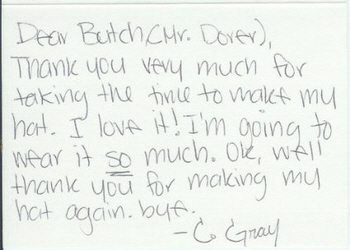 Dear Butch, (Mr. Dorer),
Thank you very much for
taking the time to make my
hat. I love it! I'm going to
wear it so much. Ok, well
thank you for making my
hat again. bye.
-C Gray